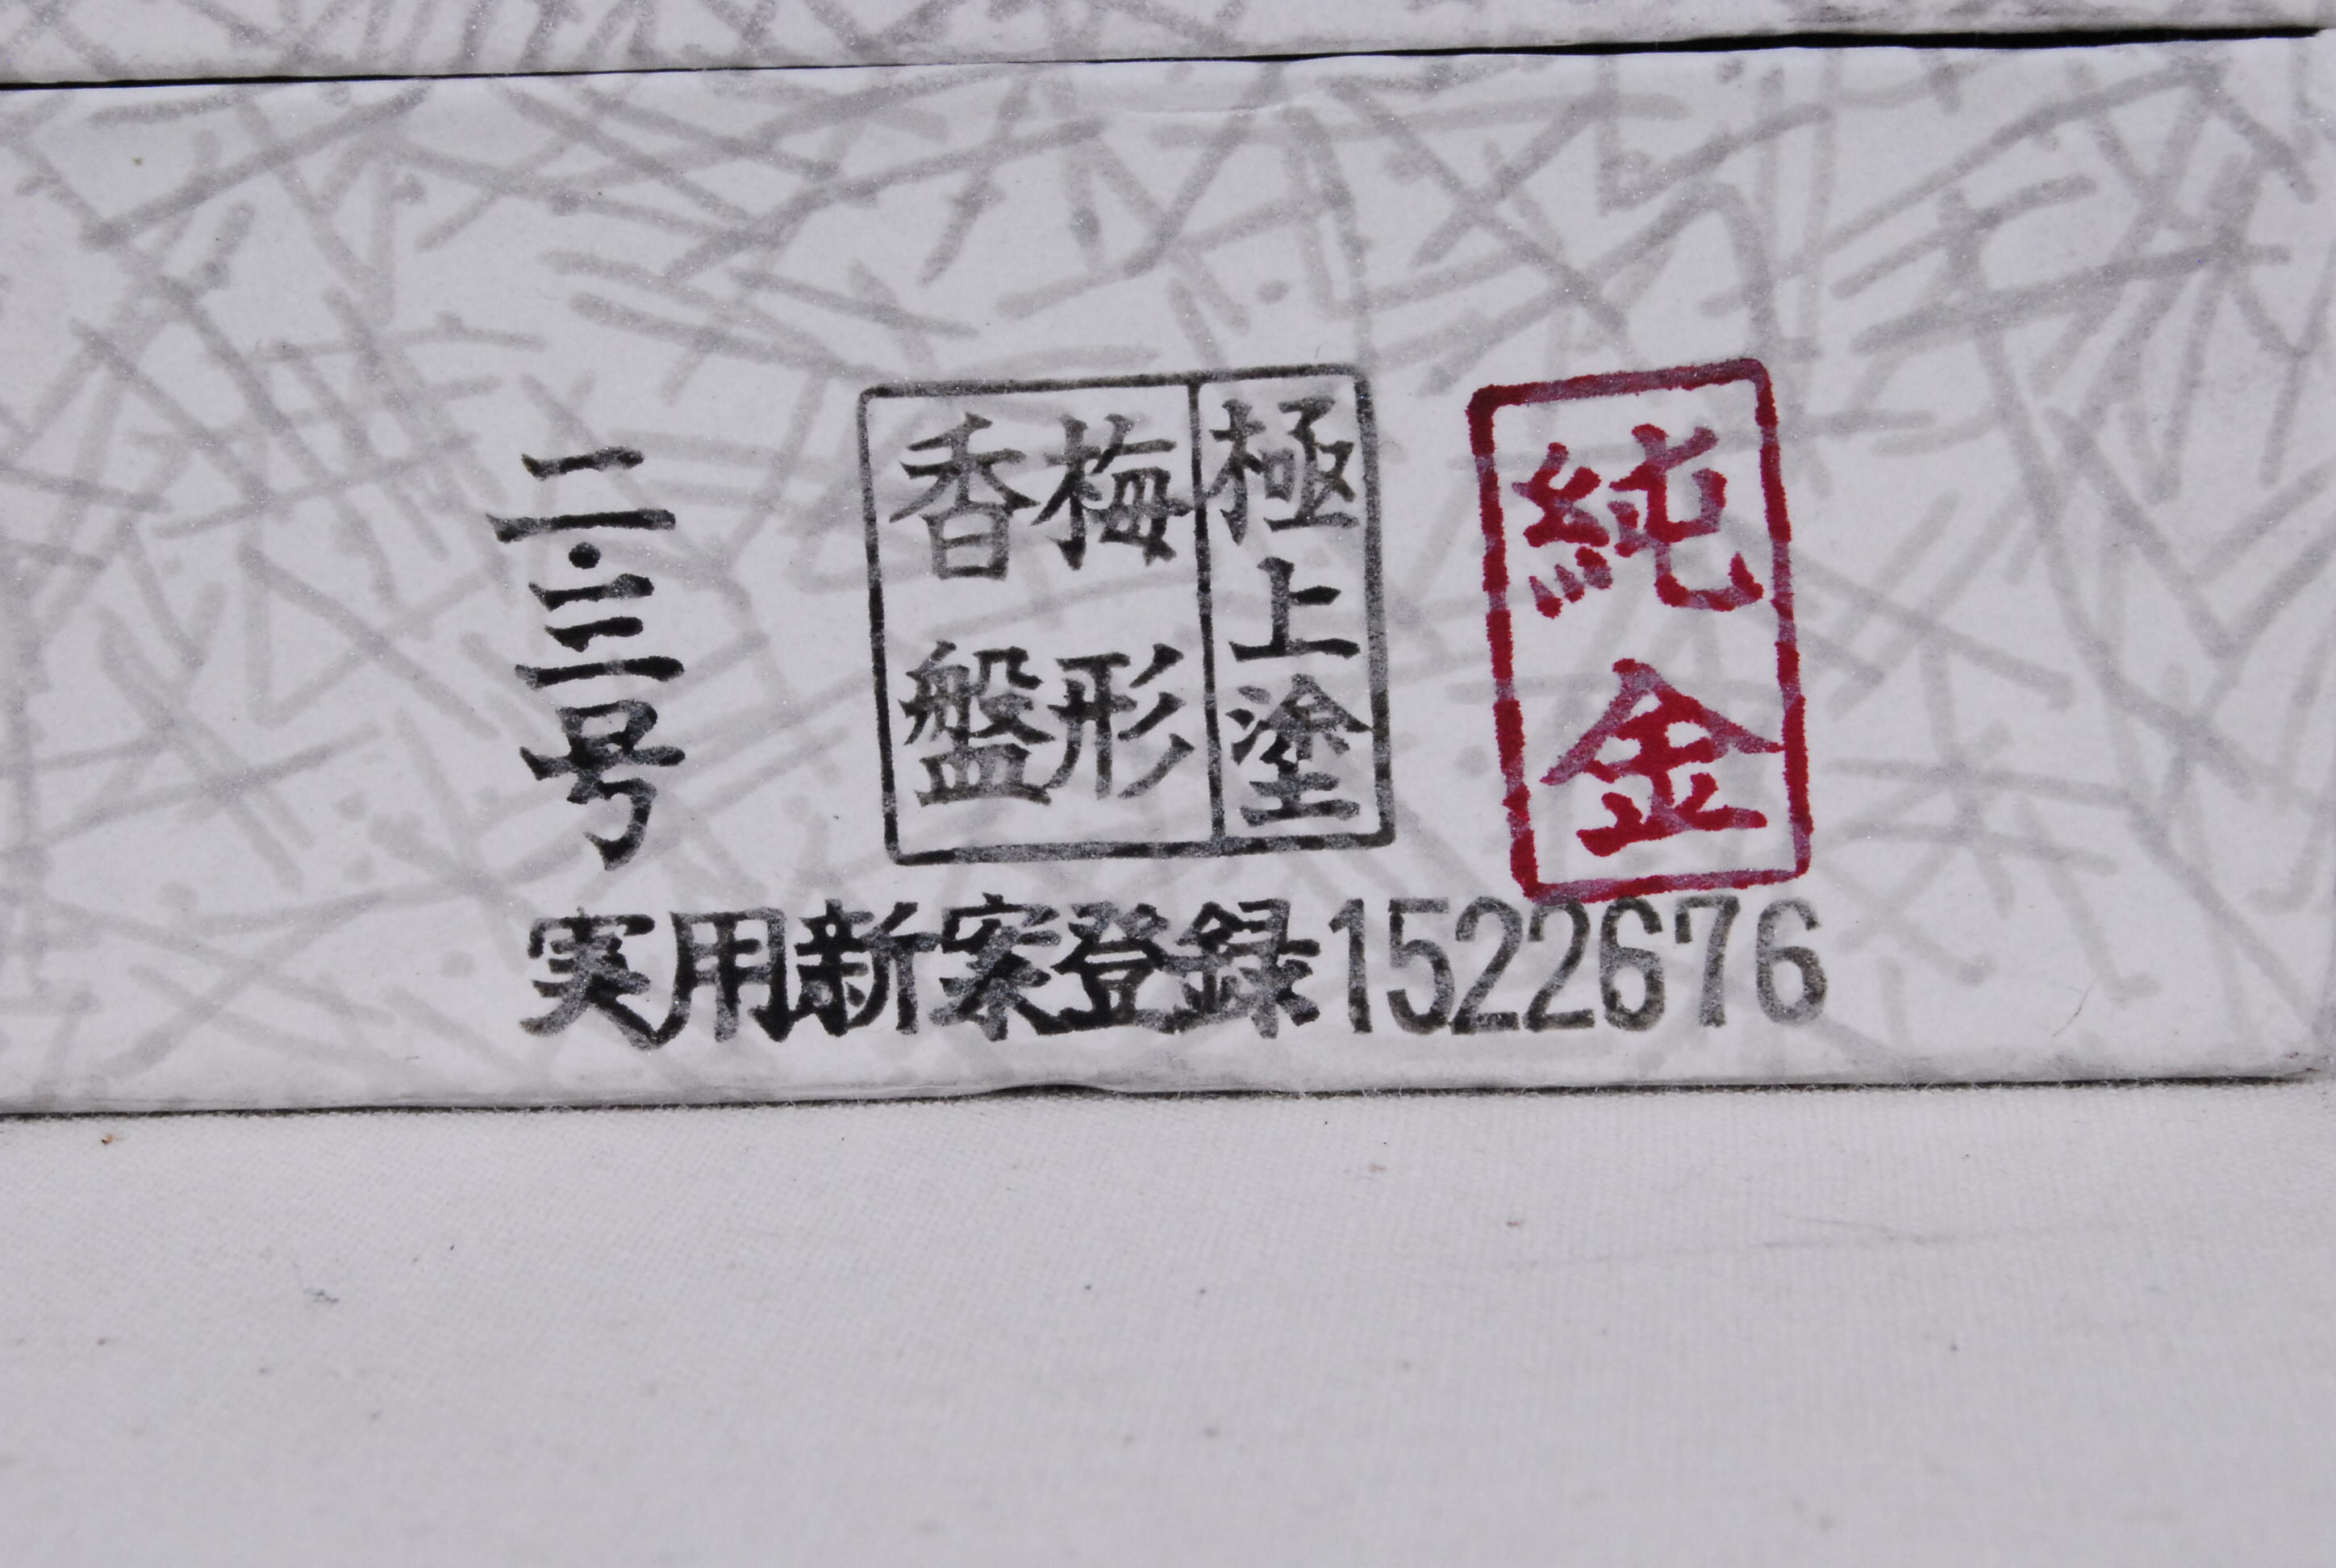 純金
極上塗
梅形
香盤
二・三号
実用新案登録1522676